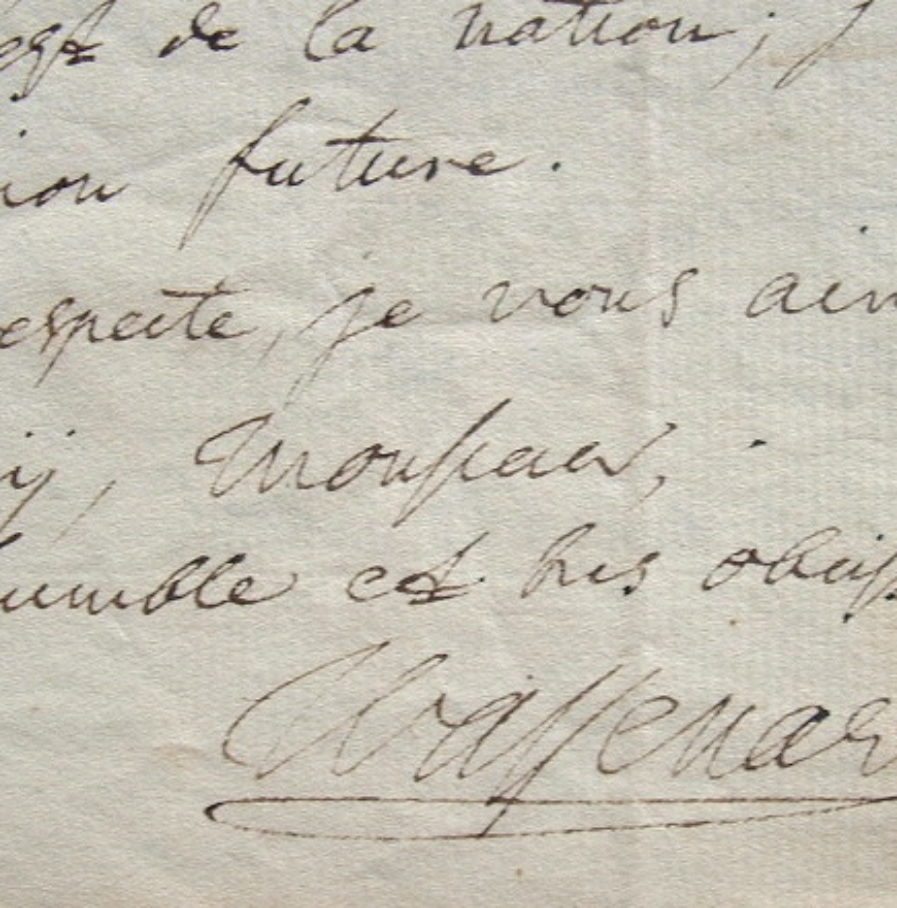 de la nation; j
ion future.
especte, je vous aim
ij, Monsieur,
humble et très obeiss
Wassenaer